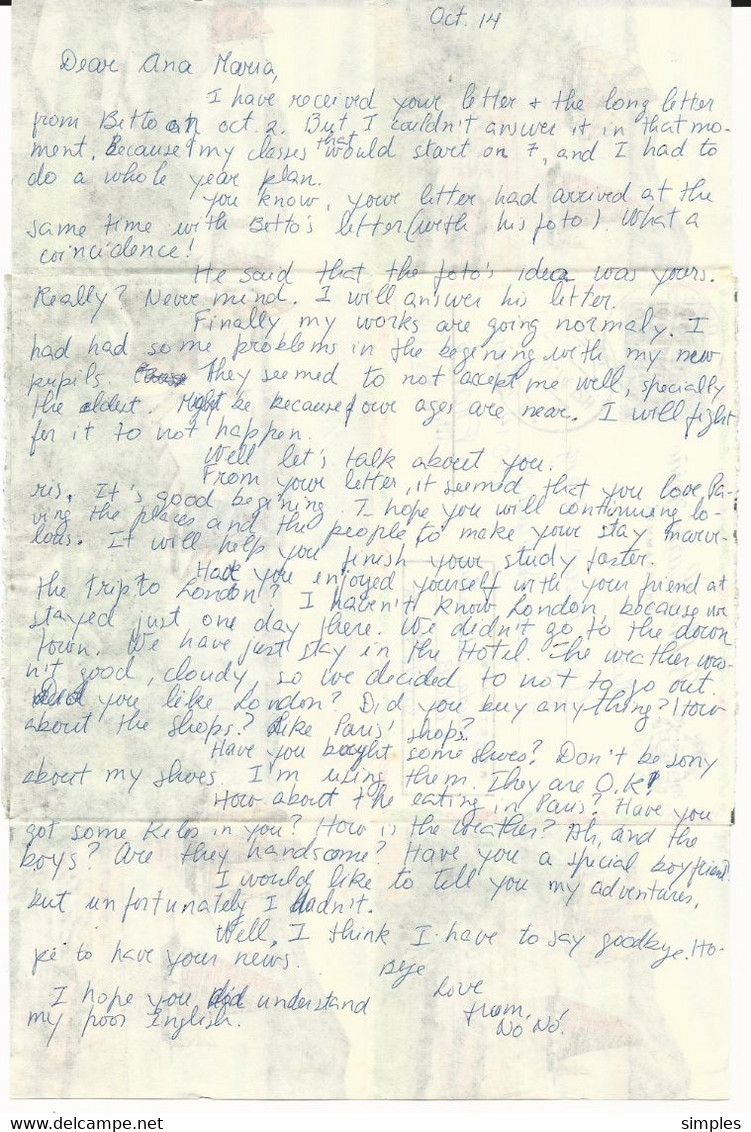 Oct. 14
Dear Ana Maria,
I have received your letter + the long letter
from Betto on oct. 2. But I couldn't answer it in that mo-
ment, because my classes that would start on 7, and I had to
do a whole year plan.
You know, your letter had arrived at the
same time with Betto's letter (with his foto). What a
coincidence!
He said that the foto's idea was yours.
Really? Never mind. I will answer his letter.
Finally my works are going normaly. I
had had some problems in the begening with my new
pupils. They seemed to not accept me well, specially
the oldest. Might be because our ages are near. I will fight
for it to not happen.
Well let's talk about you.
From your letter, it seemed that you love Pa-
ris. It's good begining. I hope you will continuing lo-
ving the places and the people to make your stay marve-
lous. It will help you finish your study faster.
Have you enjoyed yourself with your friend at
the trip to London? I haven't know London, because we
stayed just one day there. We didn't go to the down
town. We have just stay in the Hotel. The weather was-
n't good, cloudy, so we decided to not to go out.
Did you like London? Did you buy anything? How
about the shops? Like Paris' shops?
Have you bought some shoes? Don't be sorry
about my shoes. I'm using them. They are O.K!
How about the eating in Paris? Have you
got some kilos in you? How is the weather? Ah, and the
boys? Are they handsome? Have you a special boyfriend?
I would like to tell you my adventures,
but unfortunately I hadn't.
Well, I think I have to say goodbye. Ho-
pe to have your news.
Bye
Love
from,
No No!
I hope you did understand
my poor English.
www.delcampe.net
simples